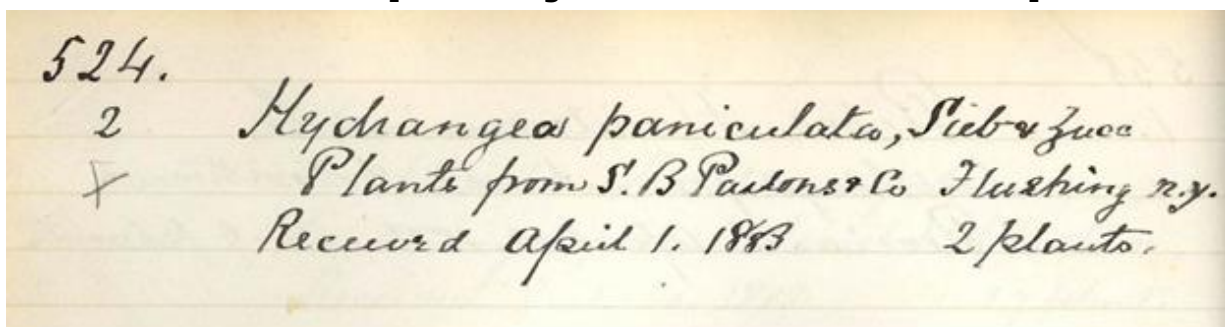 524.
2 Hydrangea paniculata, Sieb & Zucc
+ Plants from S. B Parsons & Co Flushing N.Y.
Received April 1. 1883 2 plants.